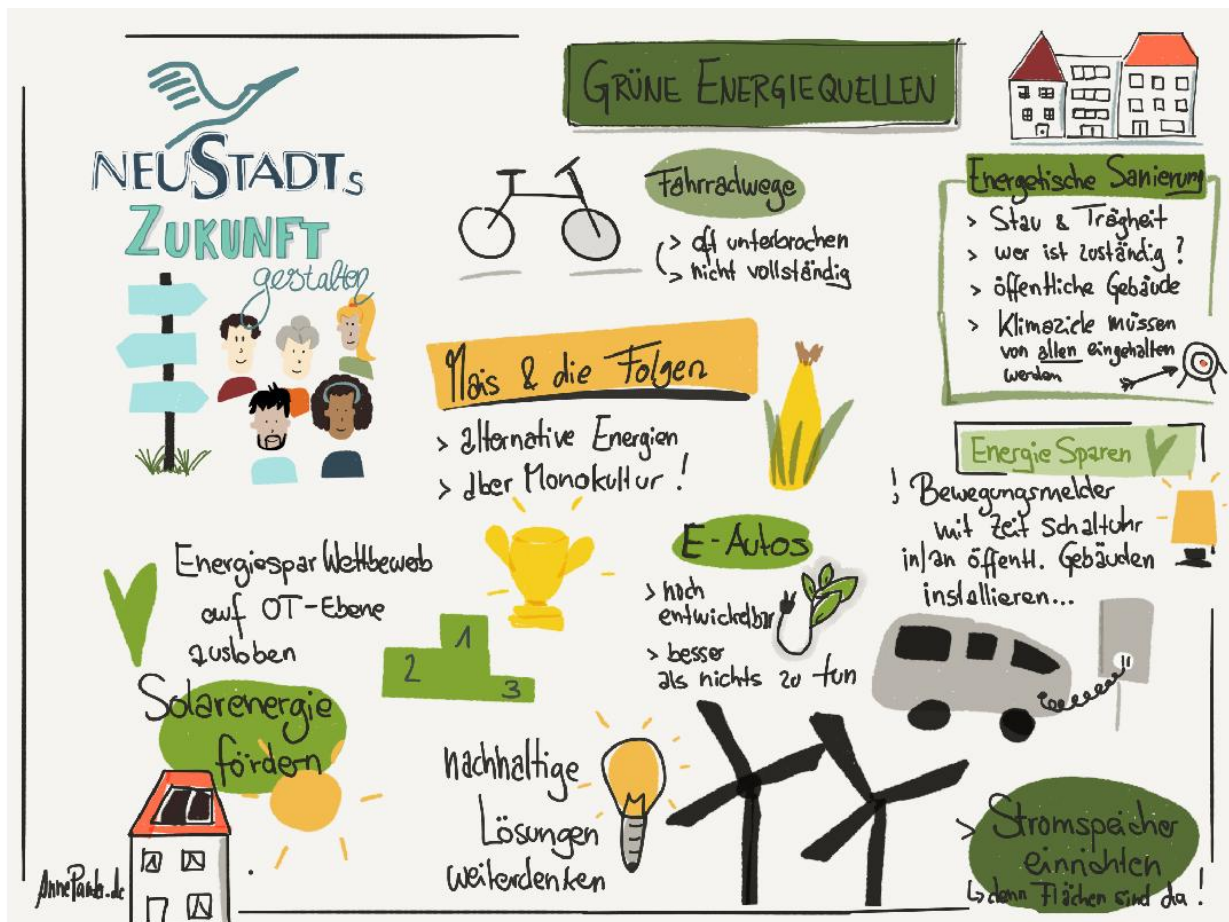 NEUSTADTs
ZUKUNFT
gestalten
GRÜNE ENERGIEQUELLEN
Fahrradwege
> oft unterbrochen
> nicht vollständig
Energetische Sanierung
> Stau & Trägheit
> wer ist zuständig?
> öffentliche Gebäude
> Klimaziele müssen
von allen eingehalten
werden
Mais & die Folgen
> alternative Energien
> aber Monokultur!
Energie Sparen
! Bewegungsmelder
mit Zeitschaltuhr
in/an öffentl. Gebäuden
installieren...
EnergiesparWettbewerb
auf OT-Ebene
ausloben
1
2
3
E-Autos
> noch
entwickelbar
> besser
als nichts zu tun
Solarenergie
fördern
nachhaltige
Lösungen
weiterdenken
> Stromspeicher
einrichten
↳ denn Flächen sind da!